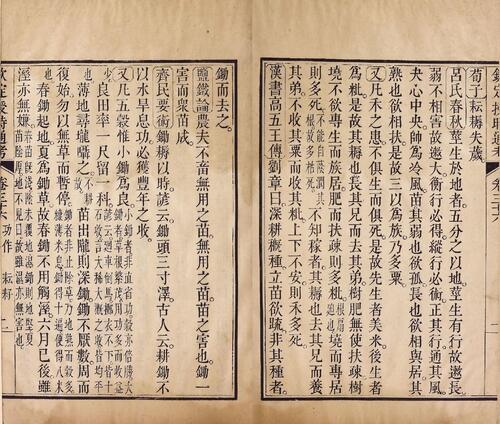 欽定授時通考
荀子耘耨失薉
呂氏春秋莖生於地者五分之以地莖生有行故遬長
弱不相害故遬大衡行必得縱行必術正其行通其風
夬心中央帥為冷風苗其弱也欲孤長也欲相與居其
熟也欲相扶是故三以為族乃多粟
又凡禾之患不俱生而俱死是故先生者美米後生者
為秕是故其耨也長其兄而去其弟樹肥無使扶疎樹
墝不欲專生而族居肥而扶疎則多秕根扇迫也墝而專居
則多死不知稼者其耨也去其兄而養
其弟不收其粟而收其秕上下不安則禾多死
漢書高五王傳劉章曰深耕穊種立苗欲疏非其種者
鋤而去之
鹽鐵論農夫不畜無用之苗無用之苗苗之害也鋤一
害而衆苗成
齊民要術鋤耨以時諺云鋤頭三寸澤古人云耕鋤不
以水旱息功必獲豐年之收
又凡五穀惟小鋤為良小鋤者非直省功穀亦倍勝大鋤者草根繁茂用功多而收益
少良田率一尺留一科諺云迴車倒馬擲衣不下皆十石而收言大稀大稠之收皆均平
也薄地尋壠躡之不耕故苗出壠則深鋤鋤不厭數周而
復始勿以無草而暫停鋤者非止除草乃地熟而穀多糠薄米息鋤得十遍便得八米
也春鋤起地夏為鋤草故春鋤不用觸溼六月已後雖
溼亦無嫌春苗既淺陰未覆地溼鋤則地堅夏苗陰厚地不見日故雖溼亦無害也
欽定授時通考 卷三十六 功作 耘耔 二